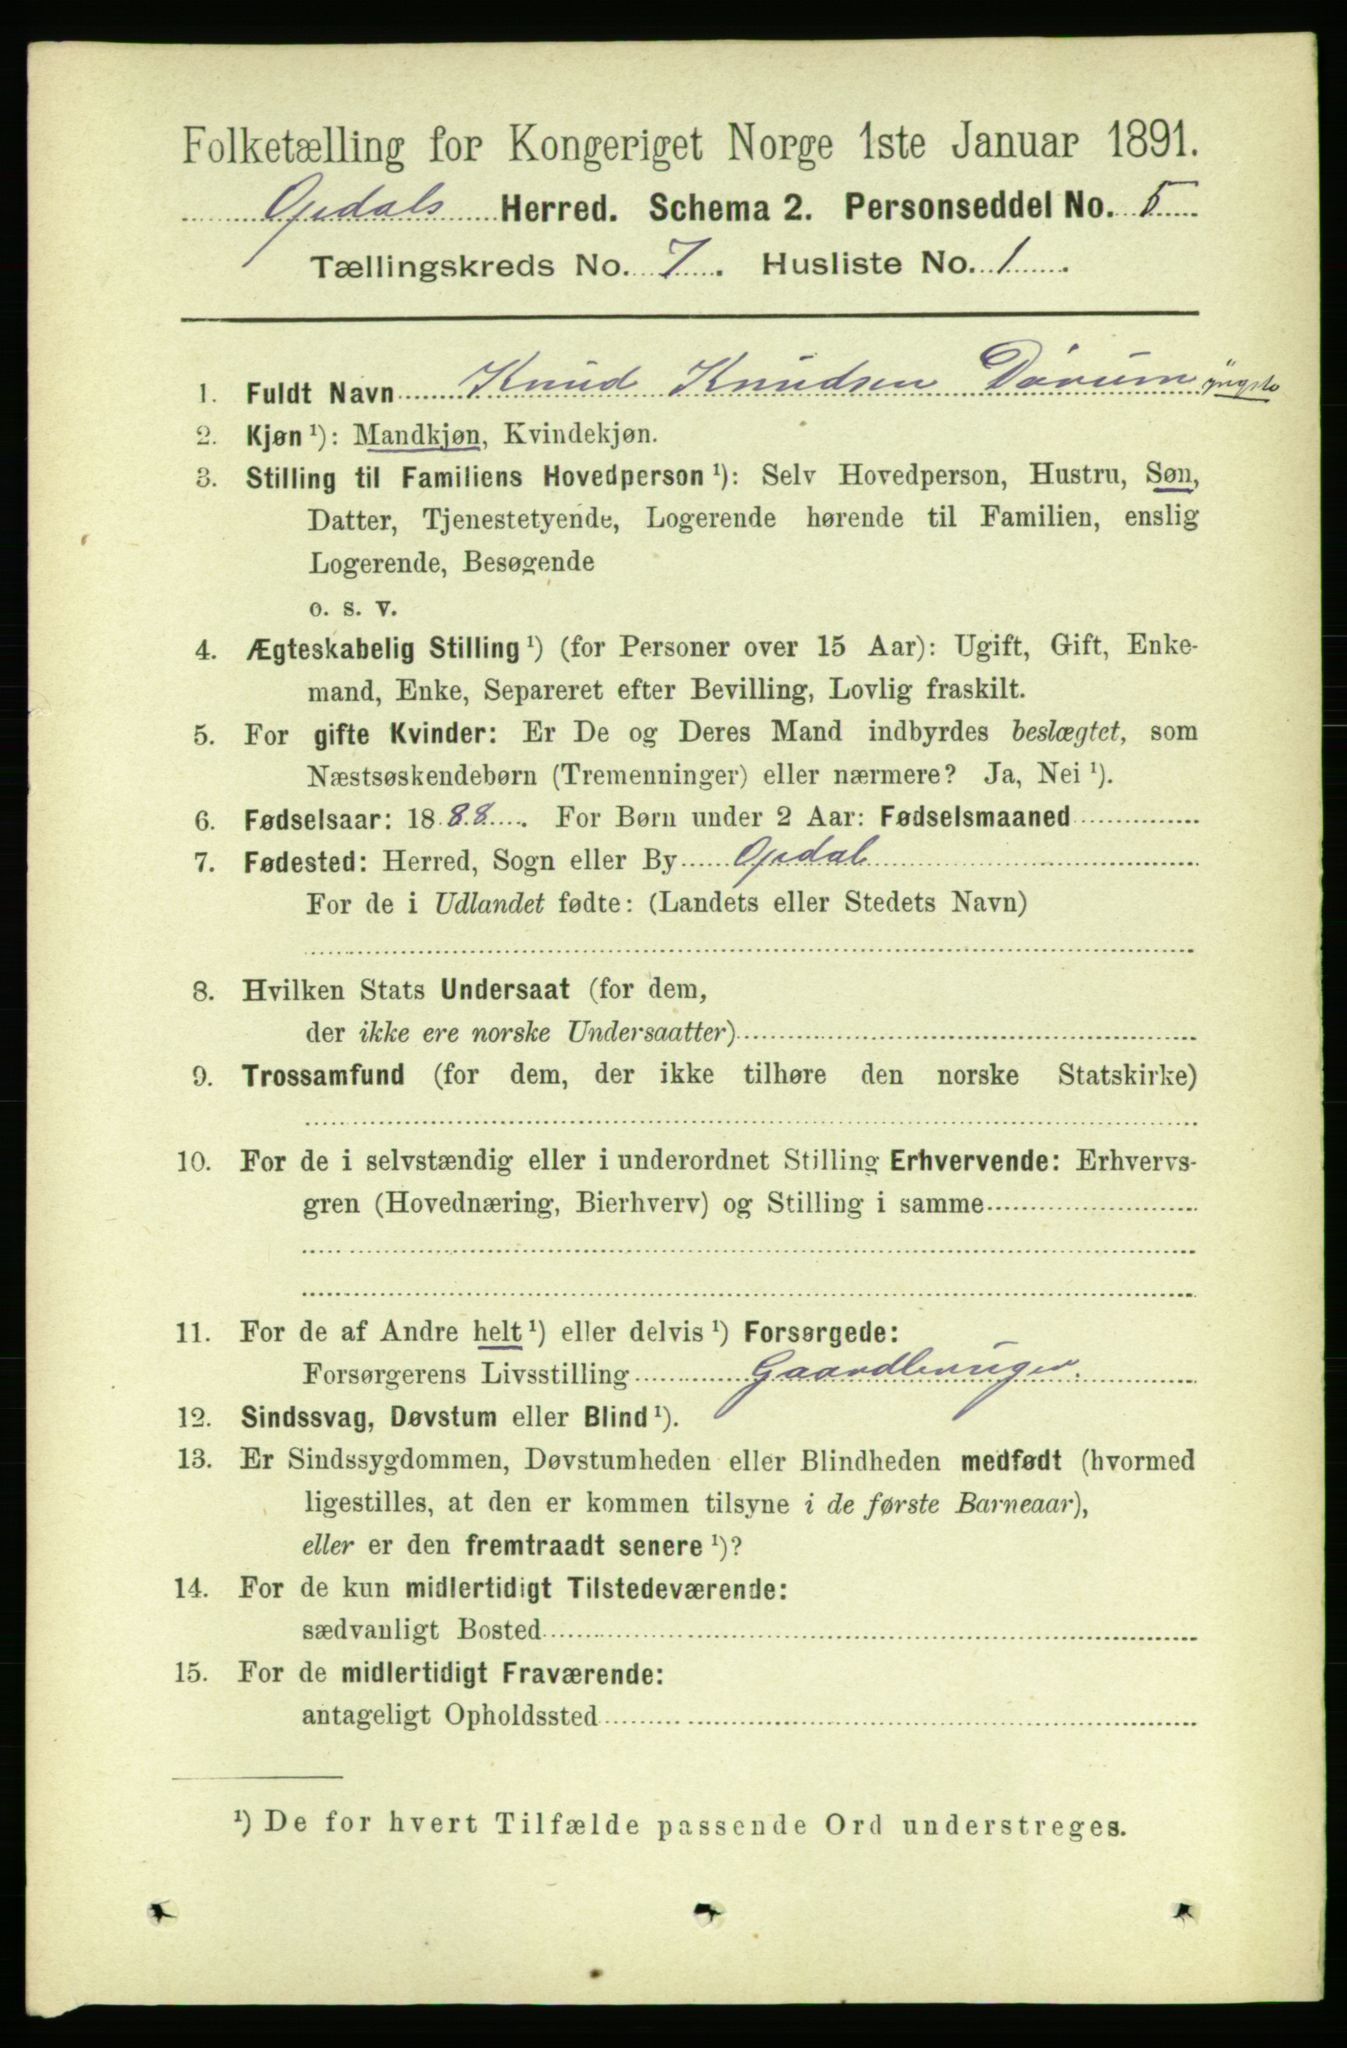 Folketælling for Kongeriget Norge 1ste Januar 1891.
Opdals Herred. Schema 2. Personseddel No. 5
Tællingskreds No. 7. Husliste No. 1.
1. Fuldt Navn Knud Knudsen Dørum yngste
2. Kjøn ¹): Mandkjøn, Kvindekjøn.
3. Stilling til Familiens Hovedperson ¹): Selv Hovedperson, Hustru, Søn,
Datter, Tjenestetyende, Logerende hørende til Familien, enslig
Logerende, Besøgende
o. s. v.
4. Ægteskabelig Stilling ¹) (for Personer over 15 Aar): Ugift, Gift, Enke-
mand, Enke, Separeret efter Bevilling, Lovlig fraskilt.
5. For gifte Kvinder: Er De og Deres Mand indbyrdes beslægtet, som
Næstsøskendebørn (Tremenninger) eller nærmere? Ja, Nei ¹).
6. Fødselsaar: 1888. For Børn under 2 Aar: Fødselsmaaned
7. Fødested: Herred, Sogn eller By Opdal
For de i Udlandet fødte: (Landets eller Stedets Navn)
8. Hvilken Stats Undersaat (for dem,
der ikke ere norske Undersaatter)
9. Trossamfund (for dem, der ikke tilhøre den norske Statskirke)
10. For de i selvstændig eller i underordnet Stilling Erhvervende: Erhvervs-
gren (Hovednæring, Bierhverv) og Stilling i samme
11. For de af Andre helt ¹) eller delvis ¹) Forsørgede:
Forsørgerens Livsstilling Gaardbruger.
12. Sindssvag, Døvstum eller Blind ¹).
13. Er Sindssygdommen, Døvstumheden eller Blindheden medfødt (hvormed
ligestilles, at den er kommen tilsyne i de første Barneaar),
eller er den fremtraadt senere ¹)?
14. For de kun midlertidigt Tilstedeværende:
sædvanligt Bosted
15. For de midlertidigt Fraværende:
antageligt Opholdssted
¹) De for hvert Tilfælde passende Ord understreges.